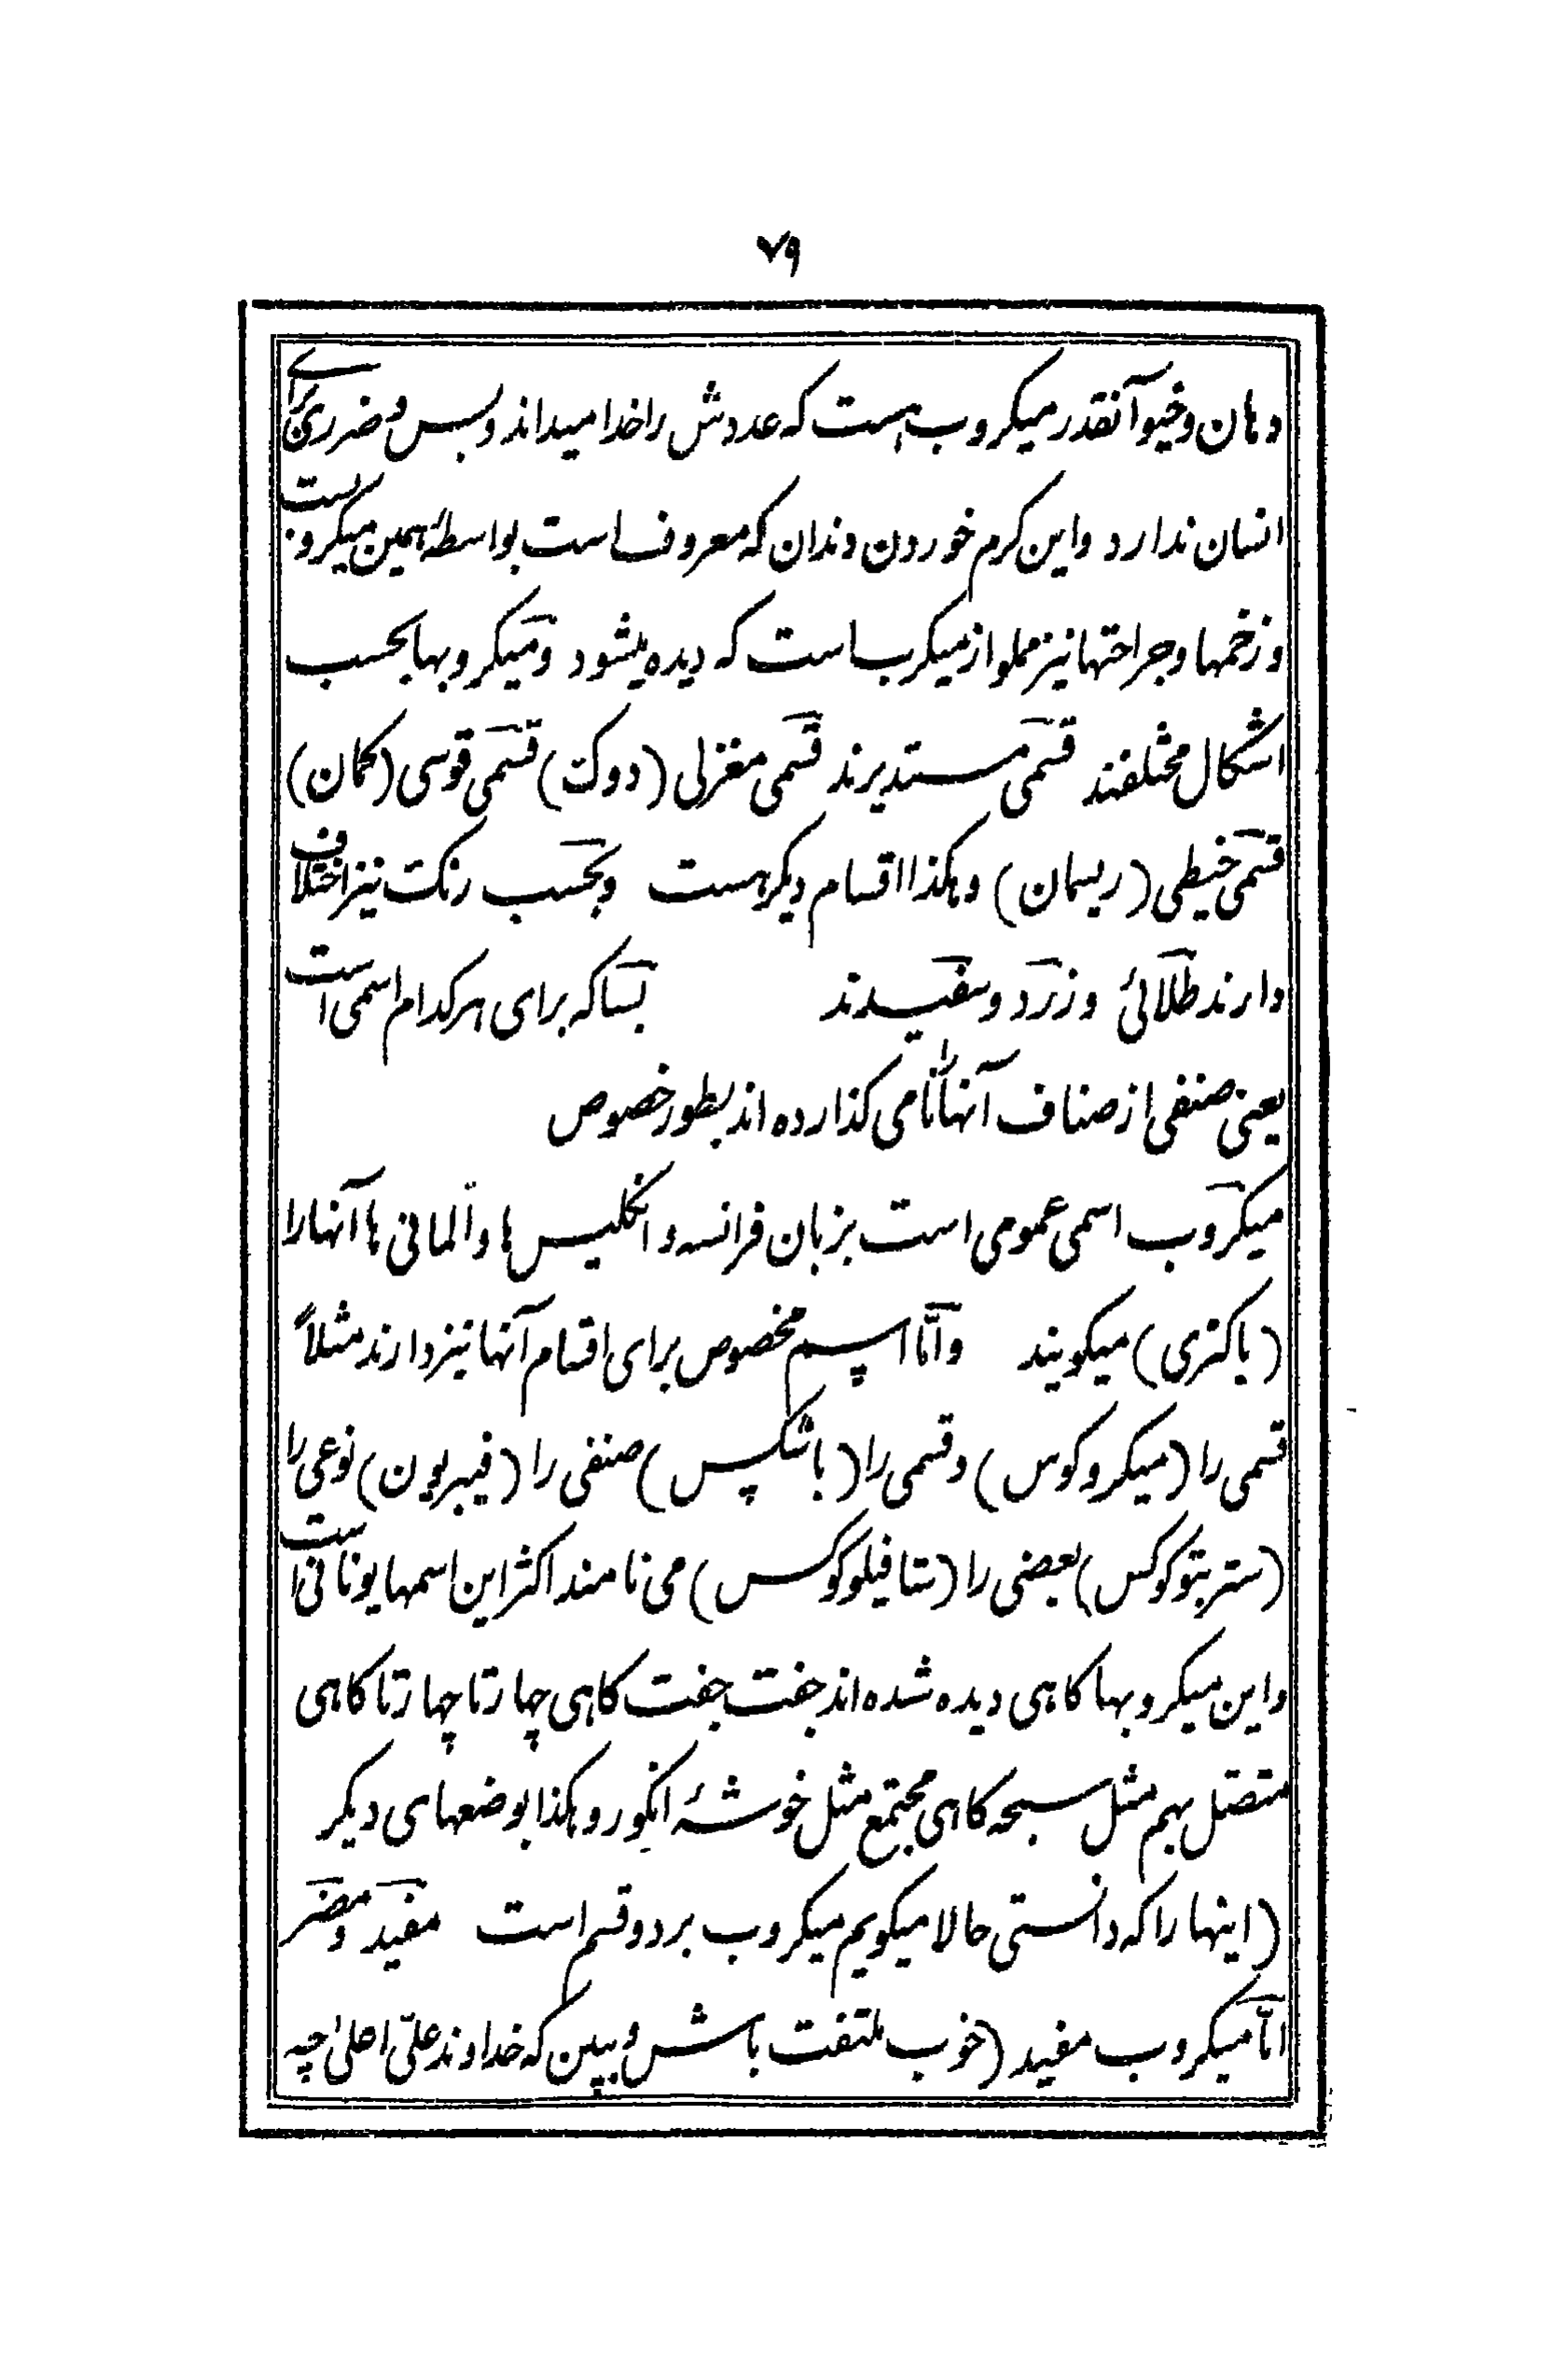 ۷۹
دهان و خیو آنقدر میکروب هست که عددش را خدا میداند و بس و ضرری برای
انسان ندارد و این کرم خوردن دندان که معروف است بواسطهٔ همین میکروبست
و زخمها و جراحتها نیز مملو از میکرب است که دیده میشود و میکروبها بحسب
اشکال مختلفند قسمی مستدیرند قسمی مغزلی (دوک) قسمی قوسی (کمان)
قسمی خیطی (ریسمان) و هکذا اقسام دیکر هست و بحسب رنک نیز اختلاف
دارند طلائی و زرد و سفیدند بسا که برای هر کدام اسمی است
یعنی صنفی از صناف آنها نامی کذارده اند بطور خصوص
میکروب اسمی عمومی است بزبان فرانسه و انکلیس ها و المانی ها آنها را
(باکتری) میکویند و امّا اسم مخصوص برای اقسام آنها نیز دارند مثلاً
قسمی را (میکروکوس) و قسمی را (باشکپس) صنفی را (فیبریون) نوعی را
(ستربتوکوکس) بعضی را (ستافیلوکوکس) می نامند اکثر این اسمها یونانی است
و این میکروبها کاهی دیده شده اند جفت جفت کاهی چهارتا چهارتا کاهی
متصل بهم مثل سبحه کاهی مجتمع مثل خوشهٔ انکور و هکذا بوضعهای دیکر
(اینها را که دانستی حالا میکویم میکروب بر دو قسم است مفید و مضر
امّا میکروب مفید (خوب ملتفت باش و ببین که خداوند علیّ اعلیٰ چه